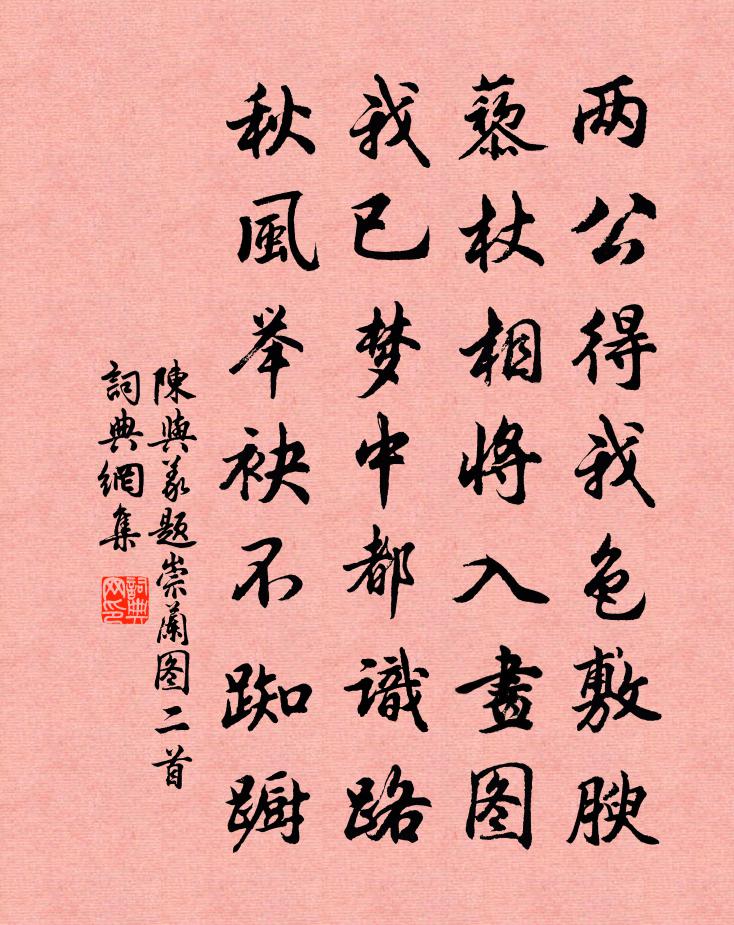 两公得我色敷腴
藜杖相将入畫图
我已梦中都識路
秋風举袂不踟蹰
陳與義題崇蘭图二首
詞典網集
詞典網印